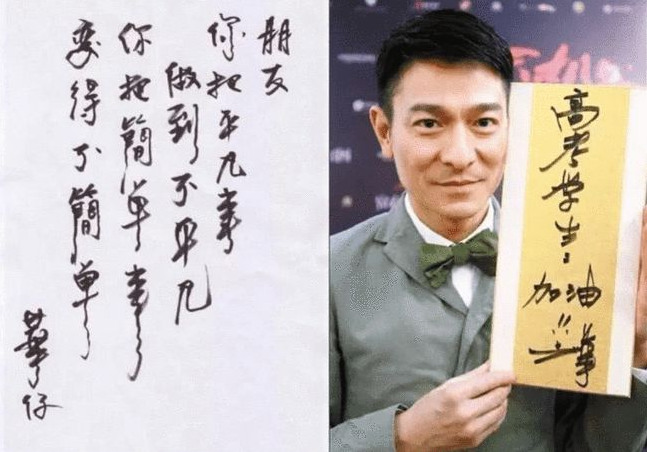 朋友
你把平凡事
做到不平凡
你把簡单事
变得不簡单
華仔
高考学生：
加油